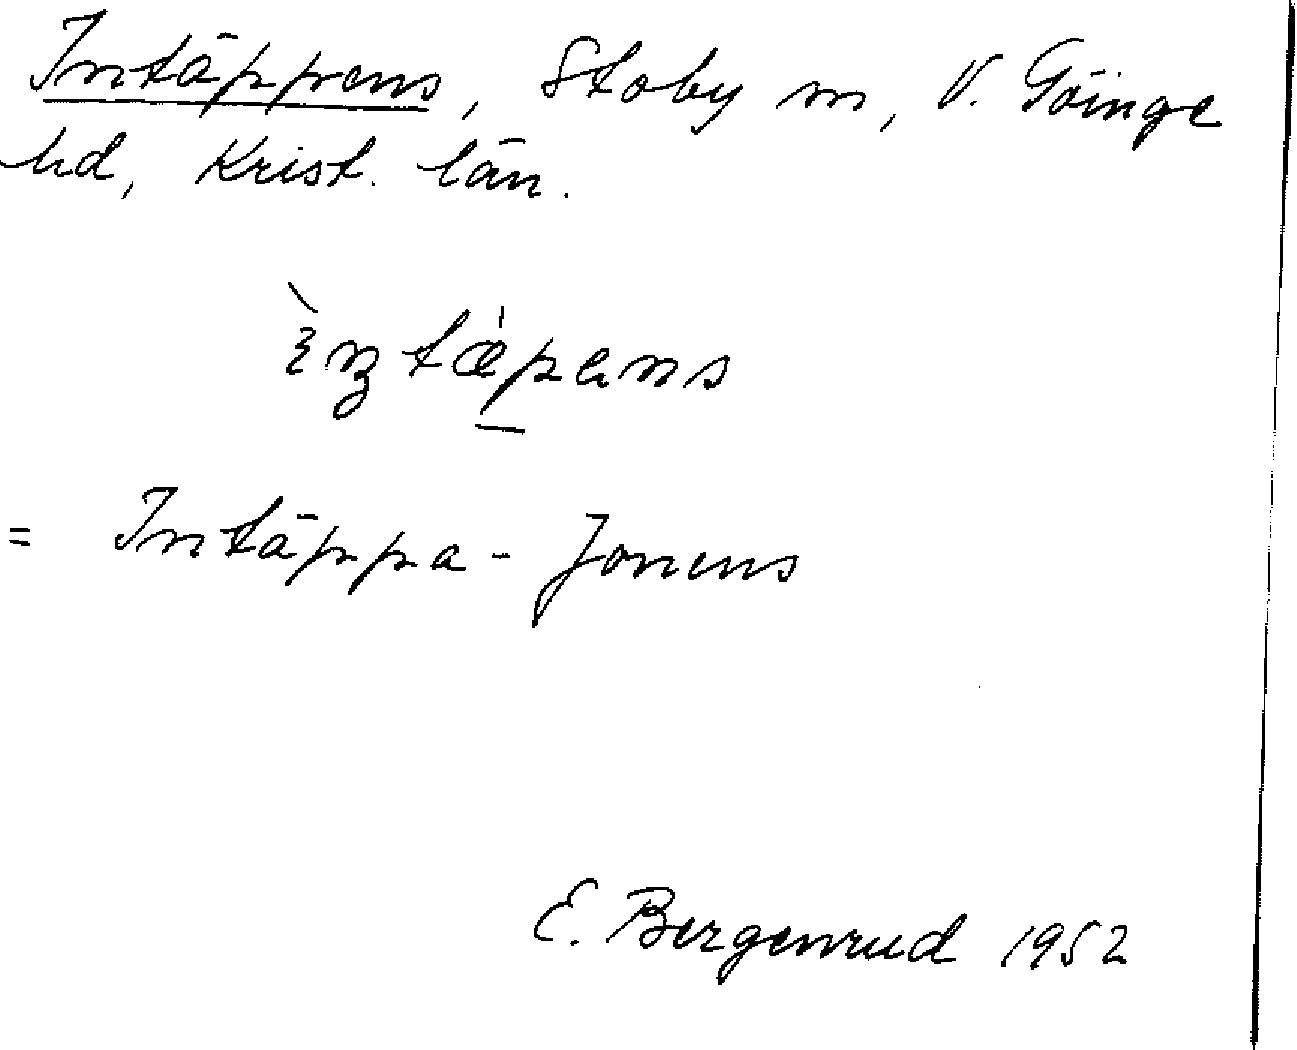 Intäppens, Stoby sn, V. Göinge
hd, Krist. län.
= Intäppa-Jonens
E. Bergenrud 1952